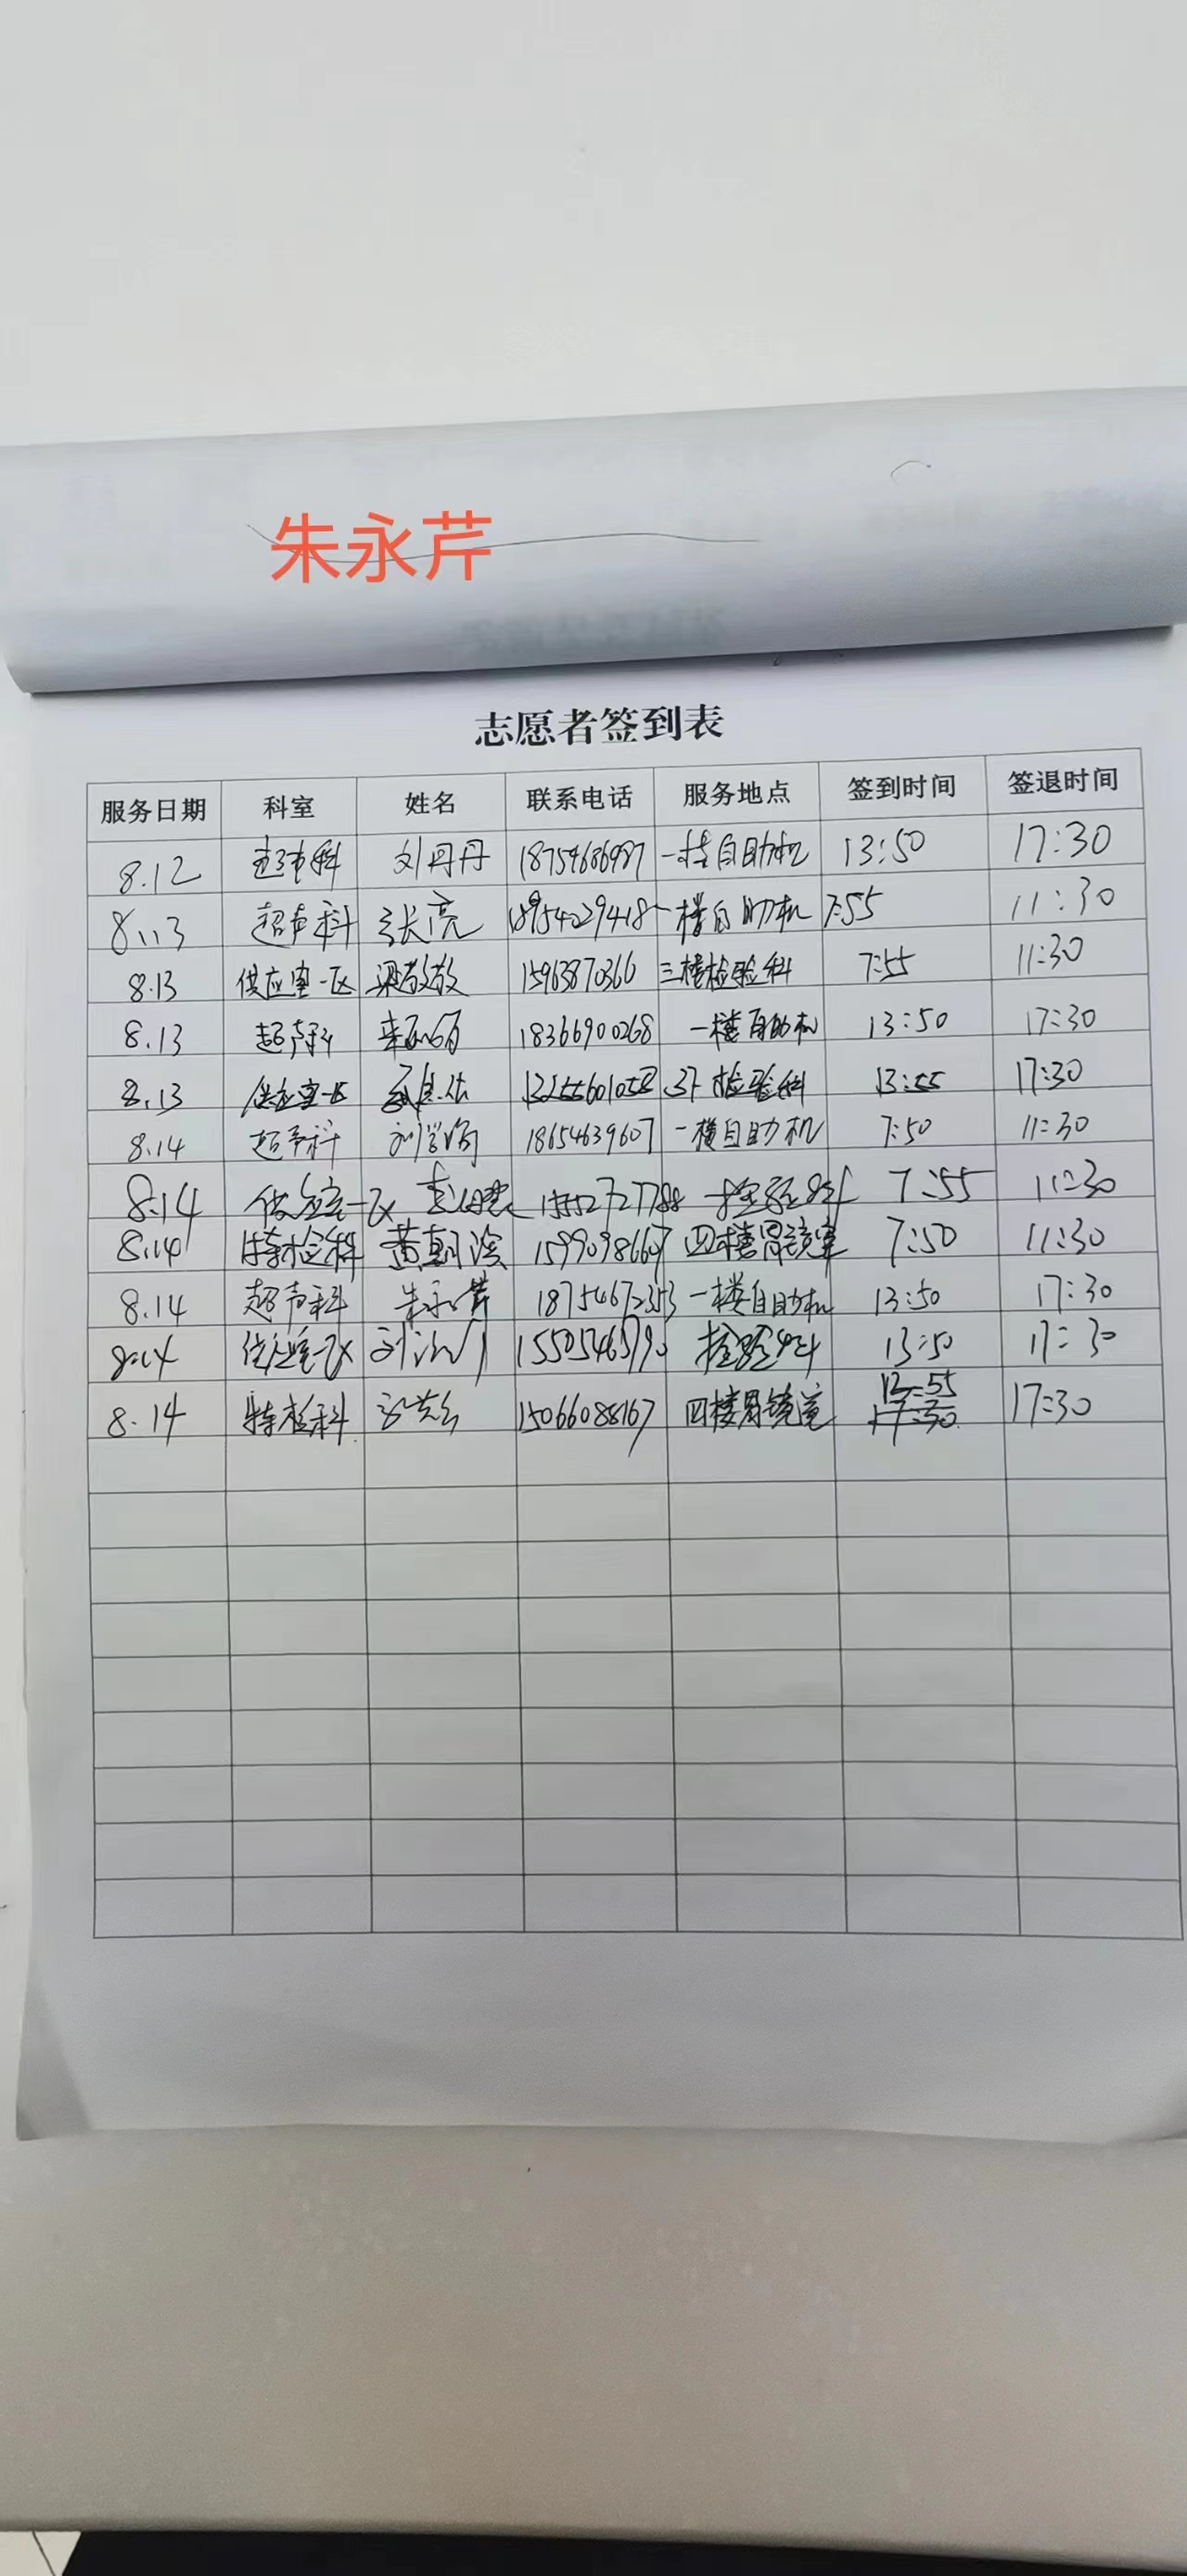 朱永芹
志愿者签到表
服务日期 科室 姓名 联系电话 服务地点 签到时间 签退时间
8.12 超声科 刘丹丹 18754686987 一楼自助机 13:50 17:30
8.13 超声科 张亮 18954029418 一楼自助机 7:55 11:30
8.13 供应室一区 梁敬敬 15963870366 三楼检验科 7:55 11:30
8.13 超声科 18366900268 一楼自助机 13:50 17:30
8.13 供应室一区 13255601058 3F 检验科 13:55 17:30
8.14 超声科 18654639607 一楼自助机 7:50 11:30
8.14 供应室一区 15552727788 检验科 7:55 11:30
8.14 特检科 15990986607 四楼胃镜室 7:50 11:30
8.14 超声科 朱永芹 18754672353 一楼自助机 13:50 17:30
8.14 供应室一区 15505465790 检验科 13:50 17:30
8.14 特检科 15066088167 四楼胃镜室 13:55 17:30 17:30